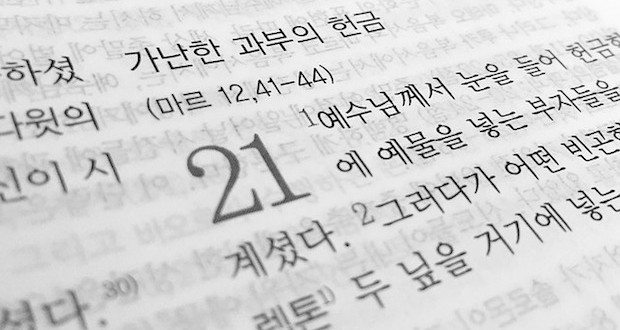 하셨
다윗의
신이 시
셨다.30)
가난한 과부의 헌금
(마르 12,41-44)
21
1예수님께서 눈을 들어 헌금함
에 예물을 넣는 부자들을
계셨다. 2그러다가 어떤 빈곤한
렙톤1) 두 닢을 거기에 넣는